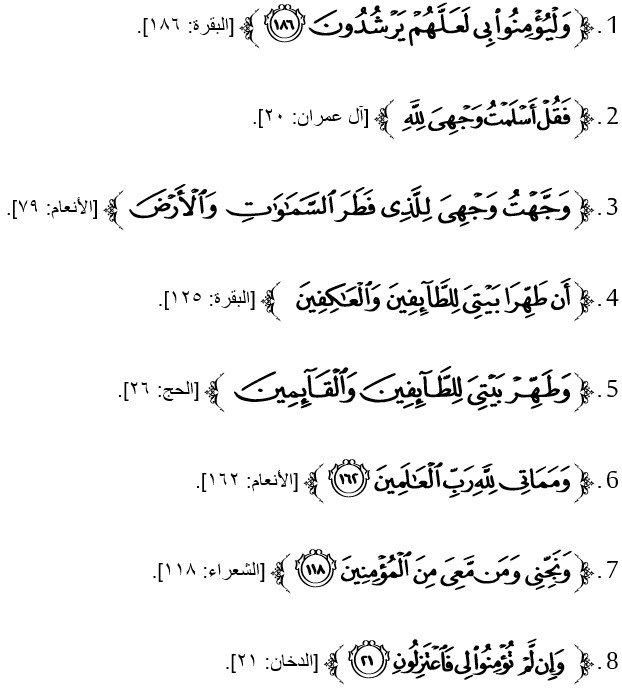 1. ﴿ وَلْيُؤْمِنُوا۟ بِى لَعَلَّهُمْ يَرْشُدُونَ ١٨٦ ﴾ [البقرة: ١٨٦].
2. ﴿ فَقُلْ أَسْلَمْتُ وَجْهِىَ لِلَّهِ ﴾ [آل عمران: ٢٠].
3. ﴿ وَجَّهْتُ وَجْهِىَ لِلَّذِى فَطَرَ ٱلسَّمَـٰوَٰتِ وَٱلْأَرْضَ ﴾ [الأنعام: ٧٩].
4. ﴿ أَن طَهِّرَا بَيْتِىَ لِلطَّآئِفِينَ وَٱلْعَـٰكِفِينَ ﴾ [البقرة: ١٢٥].
5. ﴿ وَطَهِّرْ بَيْتِىَ لِلطَّآئِفِينَ وَٱلْقَآئِمِينَ ﴾ [الحج: ٢٦].
6. ﴿ وَمَمَاتِى لِلَّهِ رَبِّ ٱلْعَـٰلَمِينَ ١٦٢ ﴾ [الأنعام: ١٦٢].
7. ﴿ وَنَجِّنِى وَمَن مَّعِىَ مِنَ ٱلْمُؤْمِنِينَ ١١٨ ﴾ [الشعراء: ١١٨].
8. ﴿ وَإِن لَّمْ تُؤْمِنُوا۟ لِى فَٱعْتَزِلُونِ ٢١ ﴾ [الدخان: ٢١].